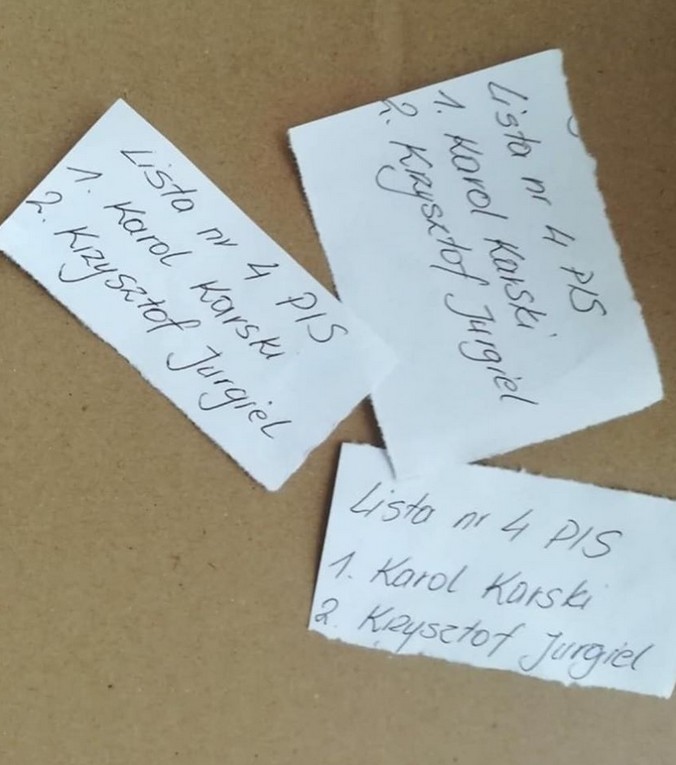 Lista nr 4 PIS
1. Karol Karski
2. Krzysztof Jurgiel
Lista nr 4 PIS
1. Karol Karski
2. Krzysztof Jurgiel
Lista nr 4 PIS
1. Karol Karski
2. Krzysztof Jurgiel